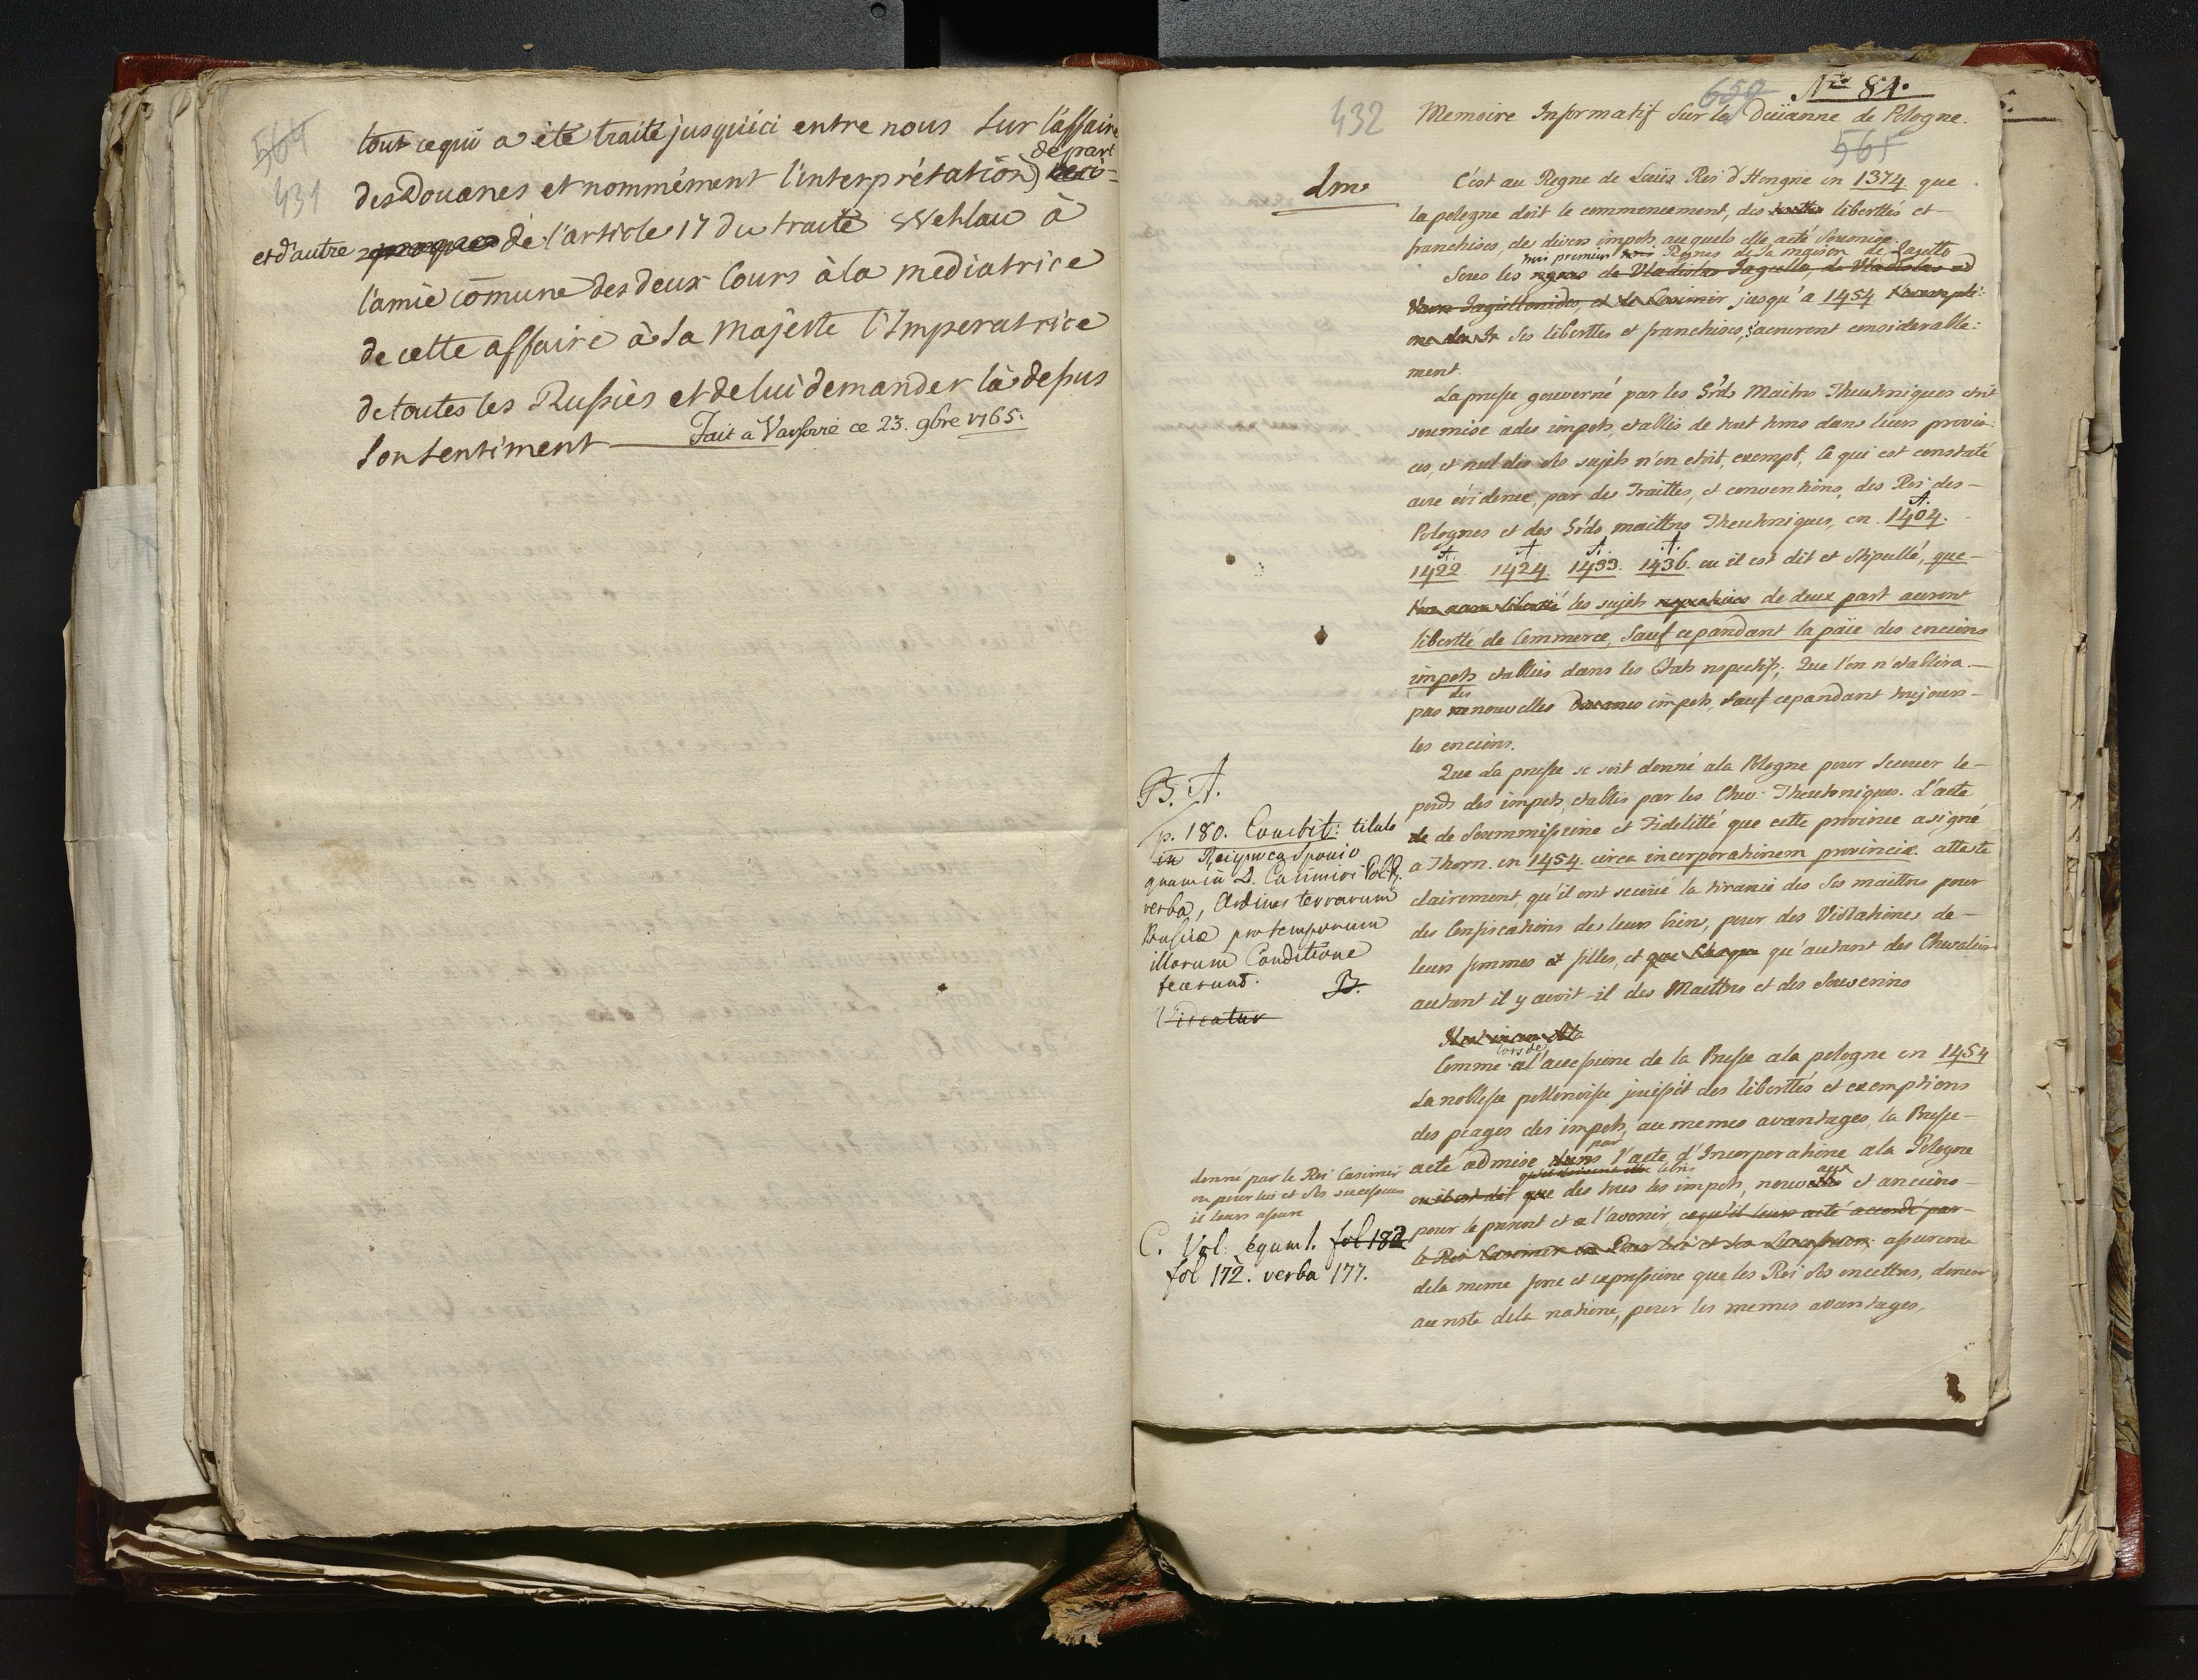 564
431
tout ce qui a été traité jusqu'ici entre nous sur l'affaire
des Douanes et nommément l'interprétation) de part
et d'autre de l'article 17 du traité Wehlau à
l'amie com̄une des deux Cours à la mediatrice
de cette affaire à Sa Majesté l'Imperatrice
de toutes les Russies et de lui demander là depus
Son Sentiment
Fait a Varsovie ce 23. 9bre 1765.
432
650
Nro 84.
Memoire Informatif Sur la Duianne de Pologne.
565
dm.
C'est au Regne de Louis Roi d'Hongrie en 1374 que
la pologne doit le commencement, des toutes libertés et
franchises, de divers impots auquels elle a eté Soumise
trois premiers Regnes de la maison de Jagello
Sous les regnes de Vladislas Jagello, de Vladislas
Jagellonides, et de Casimir jusqu'a 1454
Ses libertés et franchises, s'acrurent considerable:
ment.
La prusse gouverné par les Grds Maitres Theutoniques etoit
soumise a des impots, etablis de tout tems dans leurs provin:
ces, et nul des ses sujets n'en etoit exempt, le qui est constaté
avec évidence, par des Traittes, et conventions, des Roi des
Polognes et des Grds maittres Theutoniques, en 1404.
A.
A. A. A. A.
1422 1424. 1433. 1436. ou il est dit et stipullé, que
les sujets respectives de deux part auront
libertté de Commerce, Sauf cepandant la paie des enciens
impots etablies dans les Etats respectifs; Que l'on n'etablira
pas des nouvelles Duanes impots, Sauf cepandant toujours
les enciens.
Que La prusse se soit donné a la Pologne pour Secouer le
poids des impots, etablis par les Chev: Theutoniques. L'acte
de de Soummissione et Fidelitté que cette province a signé
a Thorn en 1454. circa incorporationem provinciæ atteste
clairement, qu'il ont secoué la tiranie des Ses maittres pour
des Confiscations de leurs bien, pour des Violations de
leurs femmes et filles, et que qu'autant des Chevaliers
autant il y avoit-il des Maittres et des Souverins
B. A.
p. 180. titulo
in
quam in D. Casimiri Pol. R.
verba, Ordines terrarum
Prussiæ pro temporum
illorum Conditione
fecerunt.
B.
Videatur
Comme lors de a l'accessione de la Prusse a la pologne en 1454
La noblesse pollonoise jouissoit des libertés et exemptions
des peages des impots, au memes avantages, la Prusse
a eté admise par l'acte d'Incorporatione a la Pologne
ou il est dit que des tous les impots, nouveaux et anciens
pour le present et a l'avenir, ce qu'il leurs a eté accordé par
le Roi Casimir Pour lui et Ses Successeurs
de la meme force et expressione que les Roi Ses encettres,
au reste de la natione, pour les memes avantages,
donné par le Roi Casimir
ou pour lui et Ses successeurs
il leurs assure
C. Vol: legum 1. fol 182
fol 172. verba 177.